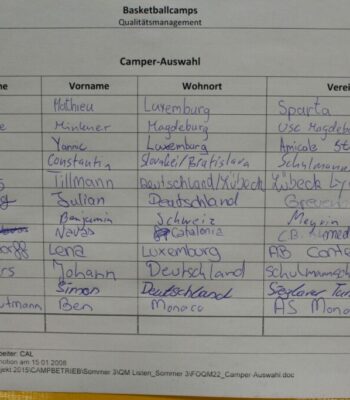 Basketballcamps
Qualitätsmanagement
Camper-Auswahl
me Vorname Wohnort Verei
Mathieu Luxemburg Sparta
e Magdeburg USC Magdebu
Yannic Luxemburg Amicale St
Constantin Slowakei/Bratislava
s Tillmann Deutschland/Lübeck Lübeck Ly
Julian Deutschland Greven
Benjamin Schweiz Meyrin
Catalonia CB.
orff Lena Luxemburg AB Conte
rs Johann Deutschland Schulmannsch
Simon Deutschland
utmann Ben Monaco AS Mona
beiter: CAL
motion am 15.01.2008
ojekt 2015\CAMPBETRIEB\Sommer 3\QM-Listen_Sommer 3\FOQM22_Camper-Auswahl.doc